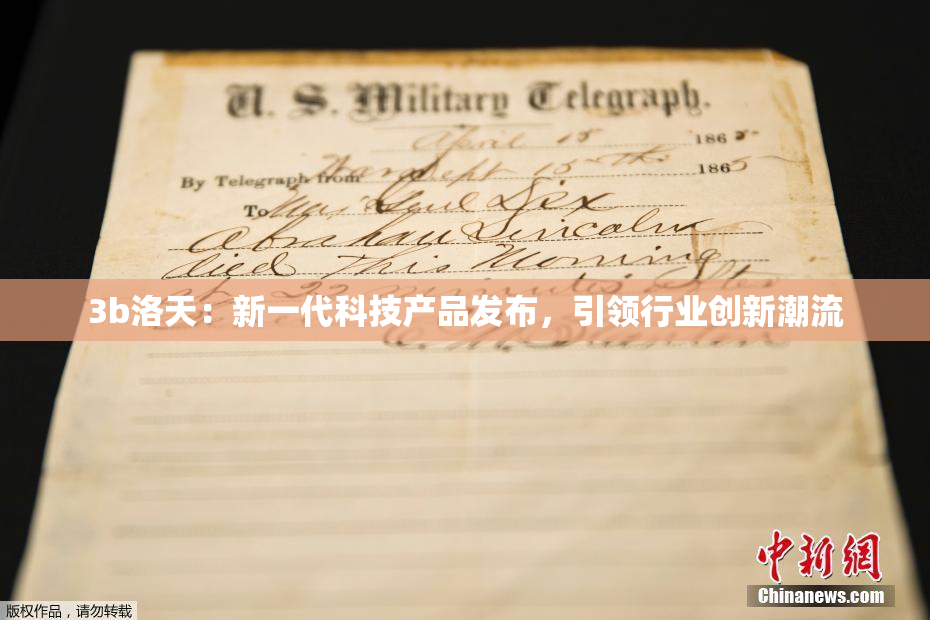 U. S. Military Telegraph.
April 15 1865
By Telegraph from War Dept 15th 1865
To Maj Genl Dix
Abraham Lincoln
died This Morning
at 22 minutes after
3b洛天：新一代科技产品发布，引领行业创新潮流
中新网
Chinanews.com
版权作品，请勿转载